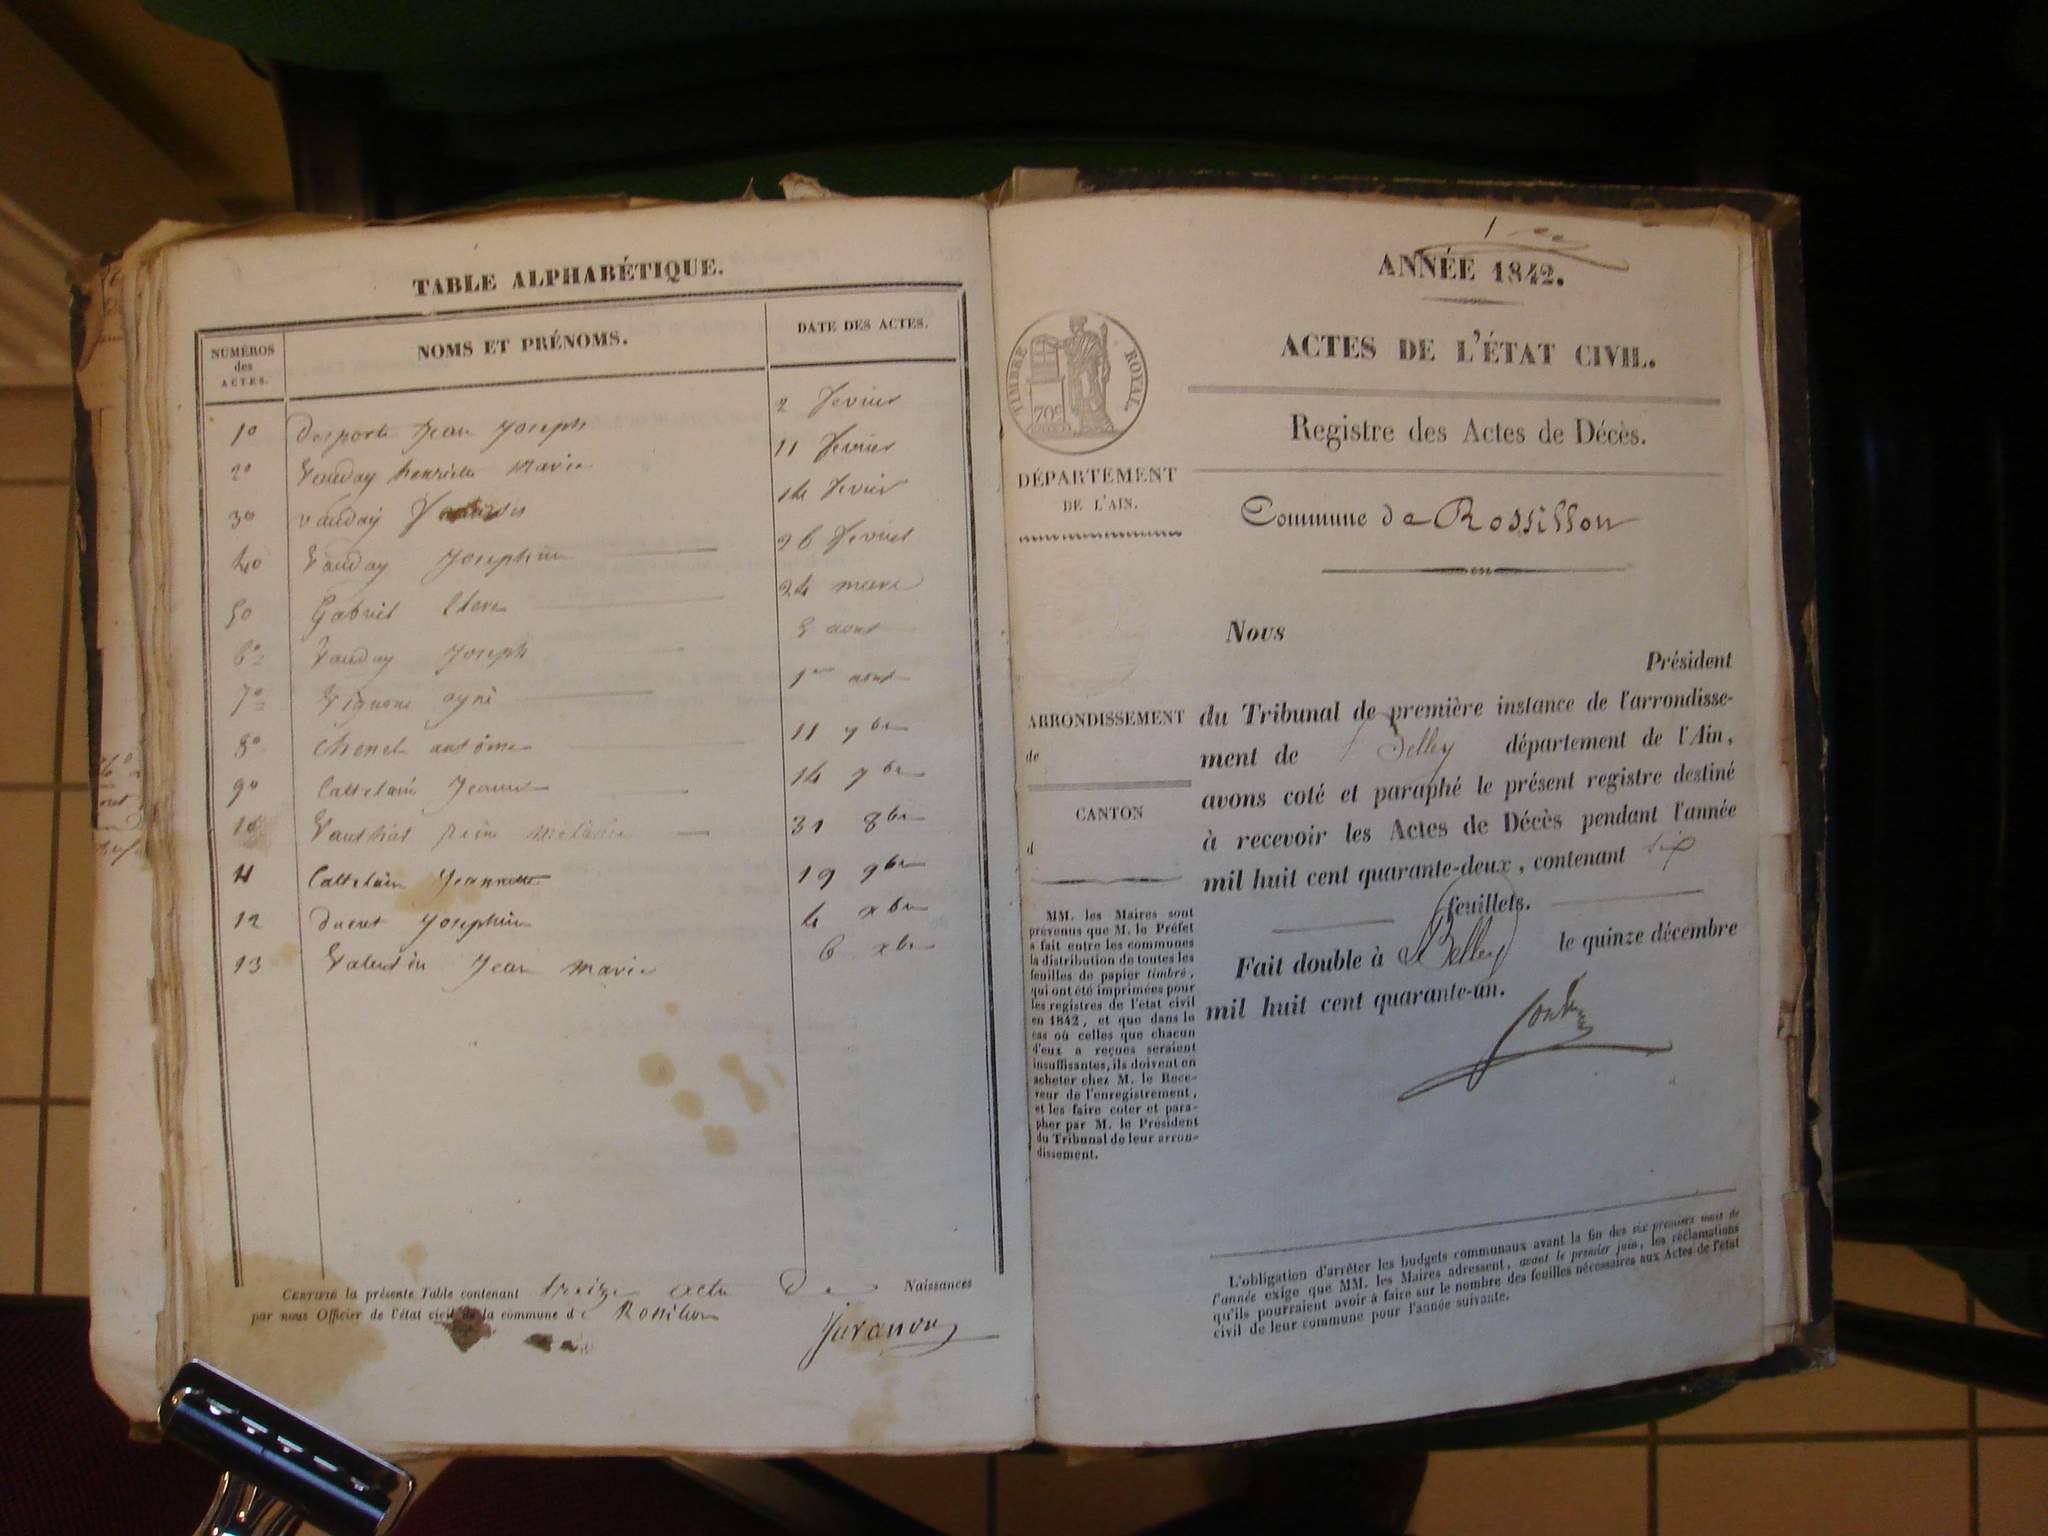 TABLE ALPHABÉTIQUE.
NUMÉROS des ACTES. NOMS ET PRÉNOMS. DATE DES ACTES.
1º Desporte Jean Joseph 2 fevrier
2º Vauday henriette Marie 11 fevrier
3º Vauday 14 fevrier
4º Vauday Josephine 26 fevrier
5º Gabriel 24 mars
6º Vauday Joseph 5 aout
7º 1er aout
8º antoine 11 7bre
9º Cattelain Jeanne 14 7bre
10 Reine Mélanie 31 8bre
11 Cattelain Jeannette 19 9bre
12 Ducret Josephine 4 xbre
13 Valentin Jean Marie 6 xbre
CERTIFIÉ la présente Table contenant treize acte De Naissances
par nous Officier de l'état civil de la commune de Rossillon
Juvanon
1
ANNÉE 1842.
ACTES DE L'ÉTAT CIVIL.
TIMBRE ROYAL.
70c
Registre des Actes de Décès.
DÉPARTEMENT
DE L'AIN.
Commune de Rossillon
Nous
Président
ARRONDISSEMENT
de
CANTON
d
du Tribunal de première instance de l'arrondisse-
ment de Belley département de l'Ain,
avons coté et paraphé le présent registre destiné
à recevoir les Actes de Décès pendant l'année
mil huit cent quarante-deux, contenant six
feuillets.
Fait double à Belley le quinze décembre
mil huit cent quarante-un.
MM. les Maires sont
prévenus que M. le Préfet
a fait entre les communes
la distribution de toutes les
feuilles de papier timbré,
qui ont été imprimées pour
les registres de l'état civil
en 1842, et que dans le
cas où celles que chacun
d'eux a reçues seraient
insuffisantes, ils doivent en
acheter chez M. le Rece-
veur de l'enregistrement,
et les faire coter et para-
pher par M. le Président
du Tribunal de leur arron-
dissement.
L'obligation d'arrêter les budgets communaux avant la fin des six premiers mois de
l'année exige que MM. les Maires adressent, avant le premier juin, les réclamations
qu'ils pourraient avoir à faire sur le nombre des feuilles nécessaires aux Actes de l'état
civil de leur commune pour l'année suivante.